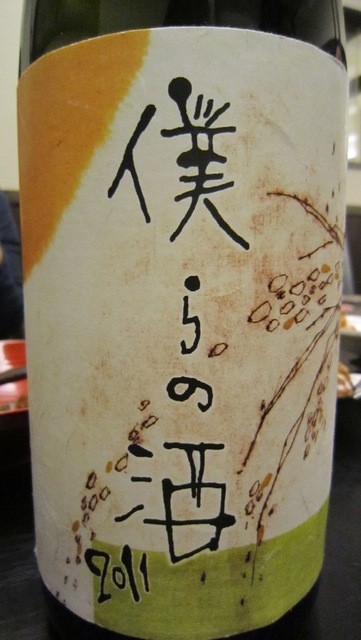 僕らの酒
2011